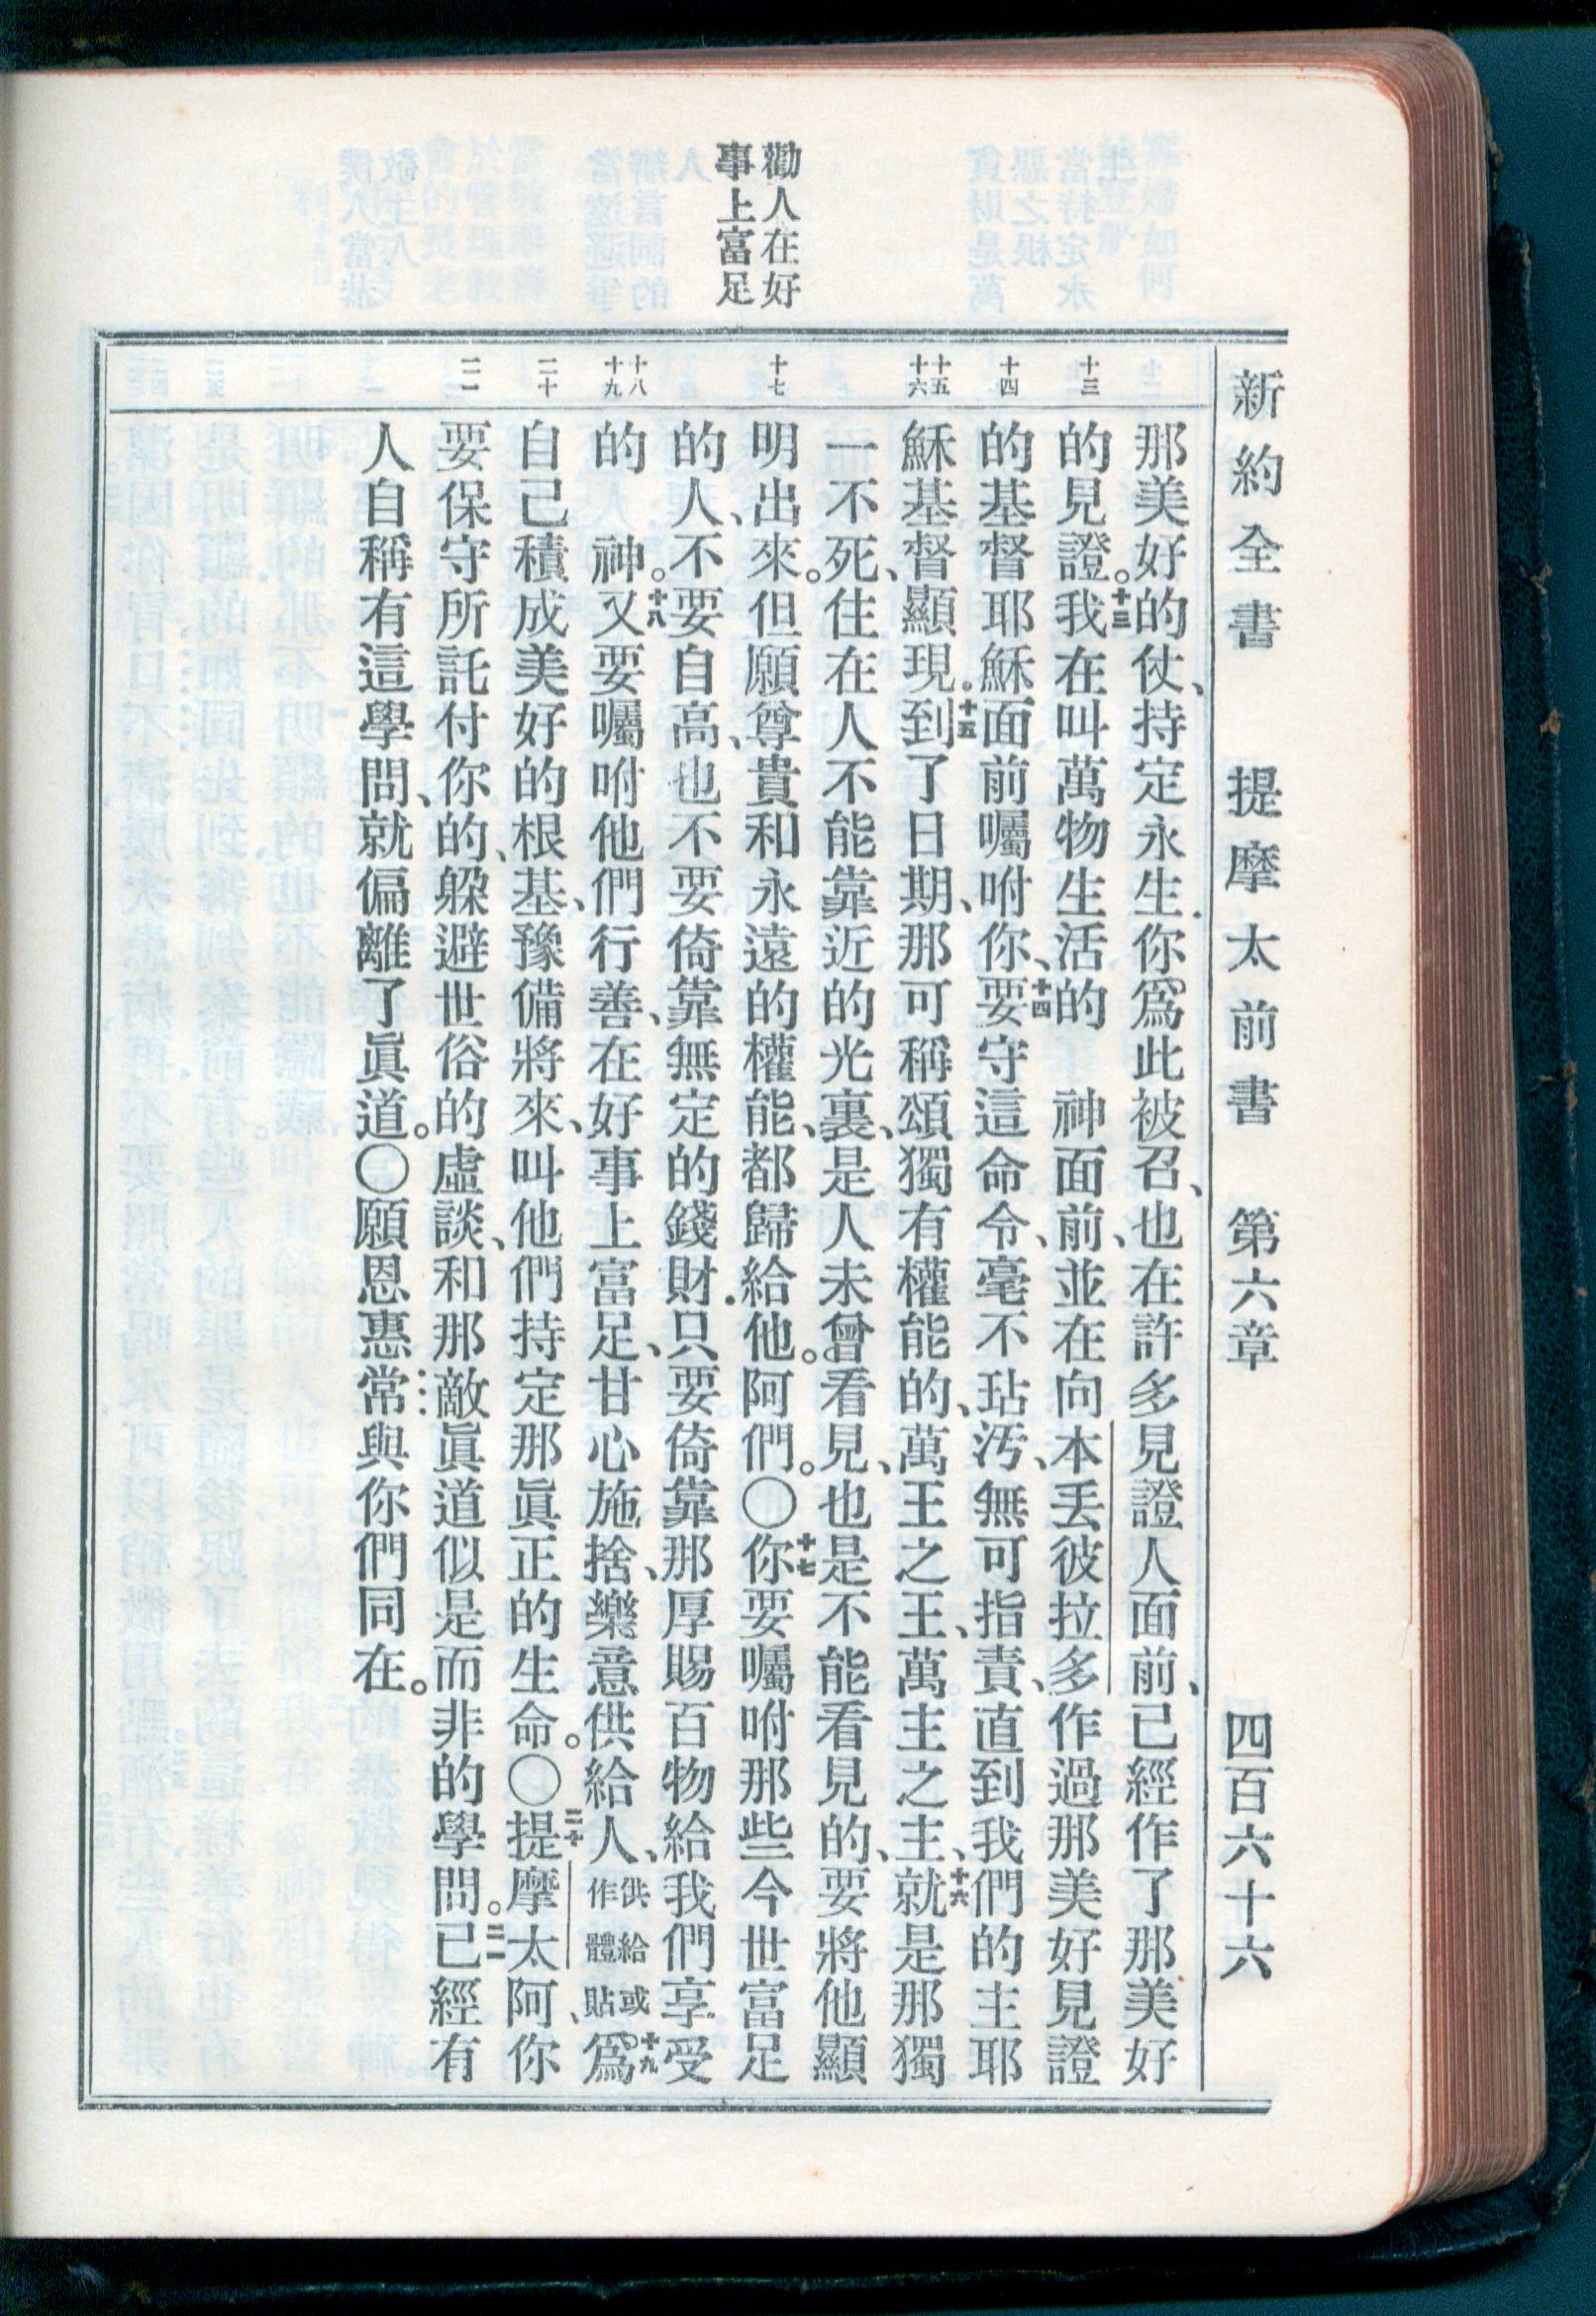 新約全書　提摩太前書　第六章　四百六十六
勸人在好
事上富足
十三
十四
十五
十六
十七
十八
十九
二十
二一
那美好的仗、持定永生．你爲此被召、也在許多見證人面前、已經作了那美好
的見證。十三我在叫萬物生活的　神面前、並在向本丟彼拉多作過那美好見證
的基督耶穌面前囑咐你、十四要守這命令、毫不玷汚、無可指責、直到我們的主耶
穌基督顯現．十五到了日期、那可稱頌獨有權能的、萬王之王、萬主之主、十六就是那獨
一不死、住在人不能靠近的光裏、是人未曾看見、也是不能看見的、要將他顯
明出來。但願尊貴和永遠的權能、都歸給他。阿們。〇十七你要囑咐那些今世富足
的人、不要自高、也不要倚靠無定的錢財．只要倚靠那厚賜百物給我們享受
的　神。十八又要囑咐他們行善、在好事上富足、甘心施捨、樂意供給人、供給或作體貼十九爲
自己積成美好的根基、豫備將來、叫他們持定那眞正的生命。〇二十提摩太阿、你
要保守所託付你的、躱避世俗的虛談、和那敵眞道似是而非的學問。二一已經有
人自稱有這學問、就偏離了眞道。〇願恩惠常與你們同在。